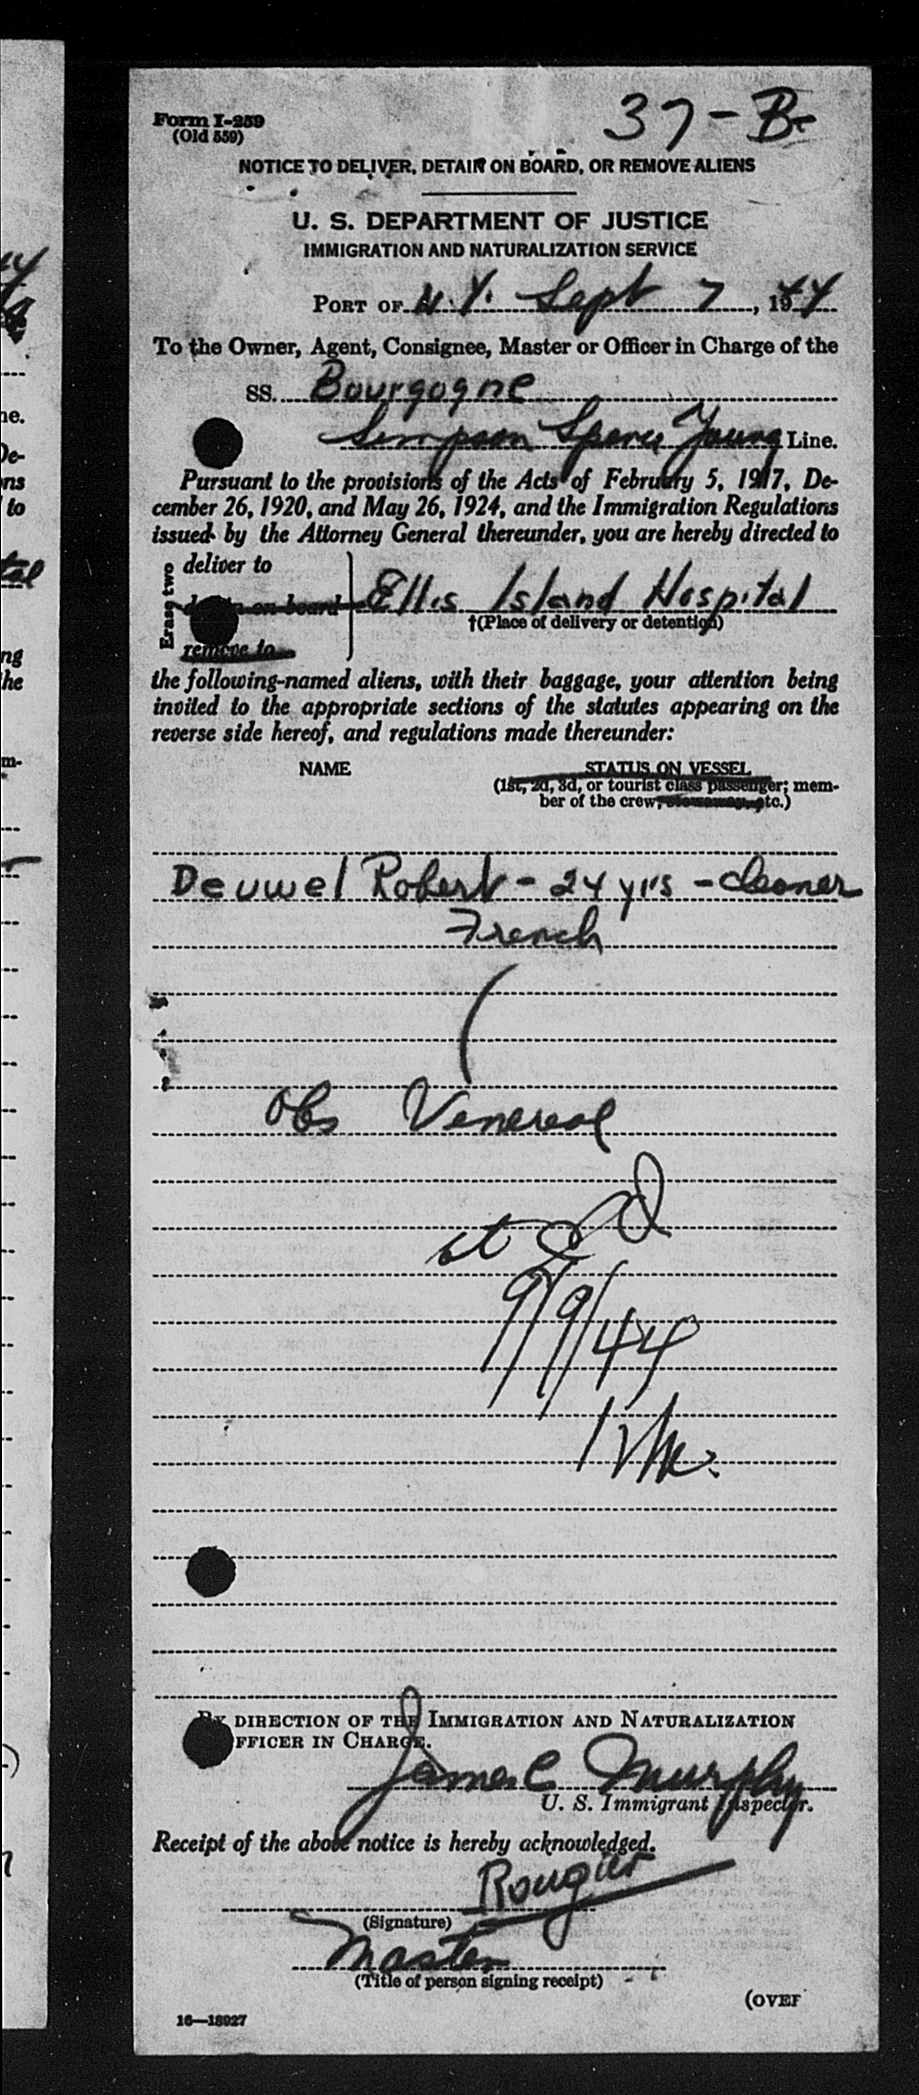 Form I-259
(Old 559)
37-B-
NOTICE TO DELIVER, DETAIN ON BOARD, OR REMOVE ALIENS
U. S. DEPARTMENT OF JUSTICE
IMMIGRATION AND NATURALIZATION SERVICE
PORT OF N.Y. Sept 7, 1944
To the Owner, Agent, Consignee, Master or Officer in Charge of the
SS. Bourgogne
Simpson Spence Young Line.
Pursuant to the provisions of the Acts of February 5, 1917, De-
cember 26, 1920, and May 26, 1924, and the Immigration Regulations
issued by the Attorney General thereunder, you are hereby directed to
Erase two
deliver to
detain on board
remove to
Ellis Island Hospital
†(Place of delivery or detention)
the following-named aliens, with their baggage, your attention being
invited to the appropriate sections of the statutes appearing on the
reverse side hereof, and regulations made thereunder:
NAME STATUS ON VESSEL
(1st, 2d, 3d, or tourist class passenger; mem-
ber of the crew, stowaway, etc.)
Deuwel Robert - 24 yrs - cleaner
French
(
Obs Venereal
9/9/44
BY DIRECTION OF THE IMMIGRATION AND NATURALIZATION
OFFICER IN CHARGE.
James C Murphy
U. S. Immigrant Inspector.
Receipt of the above notice is hereby acknowledged.
Rougier
(Signature)
Master
(Title of person signing receipt)
(OVER
16—18927